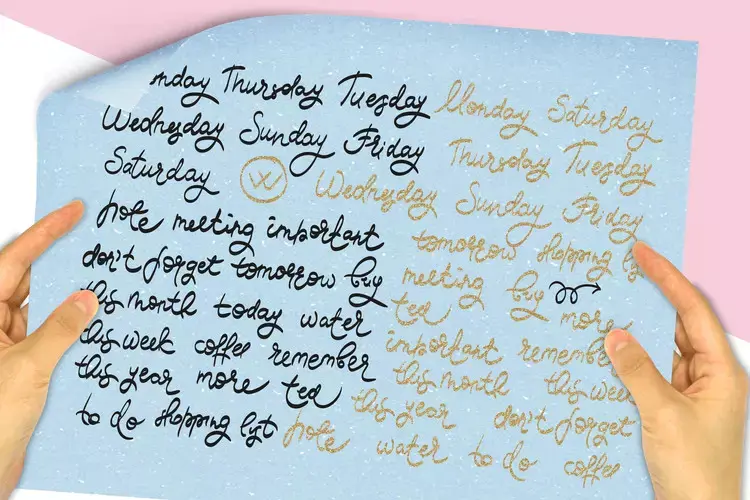 nday Thursday Tuesday Monday Saturday
Wednesday Sunday Friday Thursday Tuesday
Saturday W Wednesday Sunday Friday
note meeting important tomorrow shopping lyt
don't forget tomorrow buy meeting buy
this month today water ted more
this week coffee remember important remember
this year more ted this month this week
to do shopping lyt this year don't forget
note water to do coffee